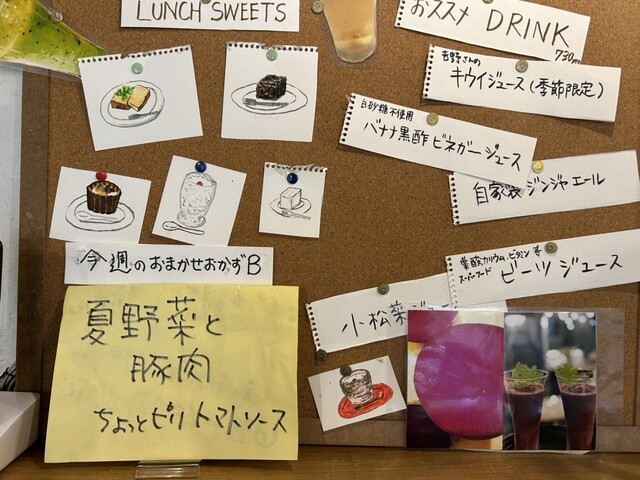 LUNCH SWEETS
おススメ DRINK
730
吉野さんの
キウイジュース(季節限定)
白砂糖不使用
バナナ黒酢ビネガージュース
自家製ジンジャエール
葉酸.カリウム.ビタミン等
スーパーフード
ビーツジュース
小松菜ジュ
今週のおまかせおかずB
夏野菜と
豚肉
ちょっとピリトマトソース